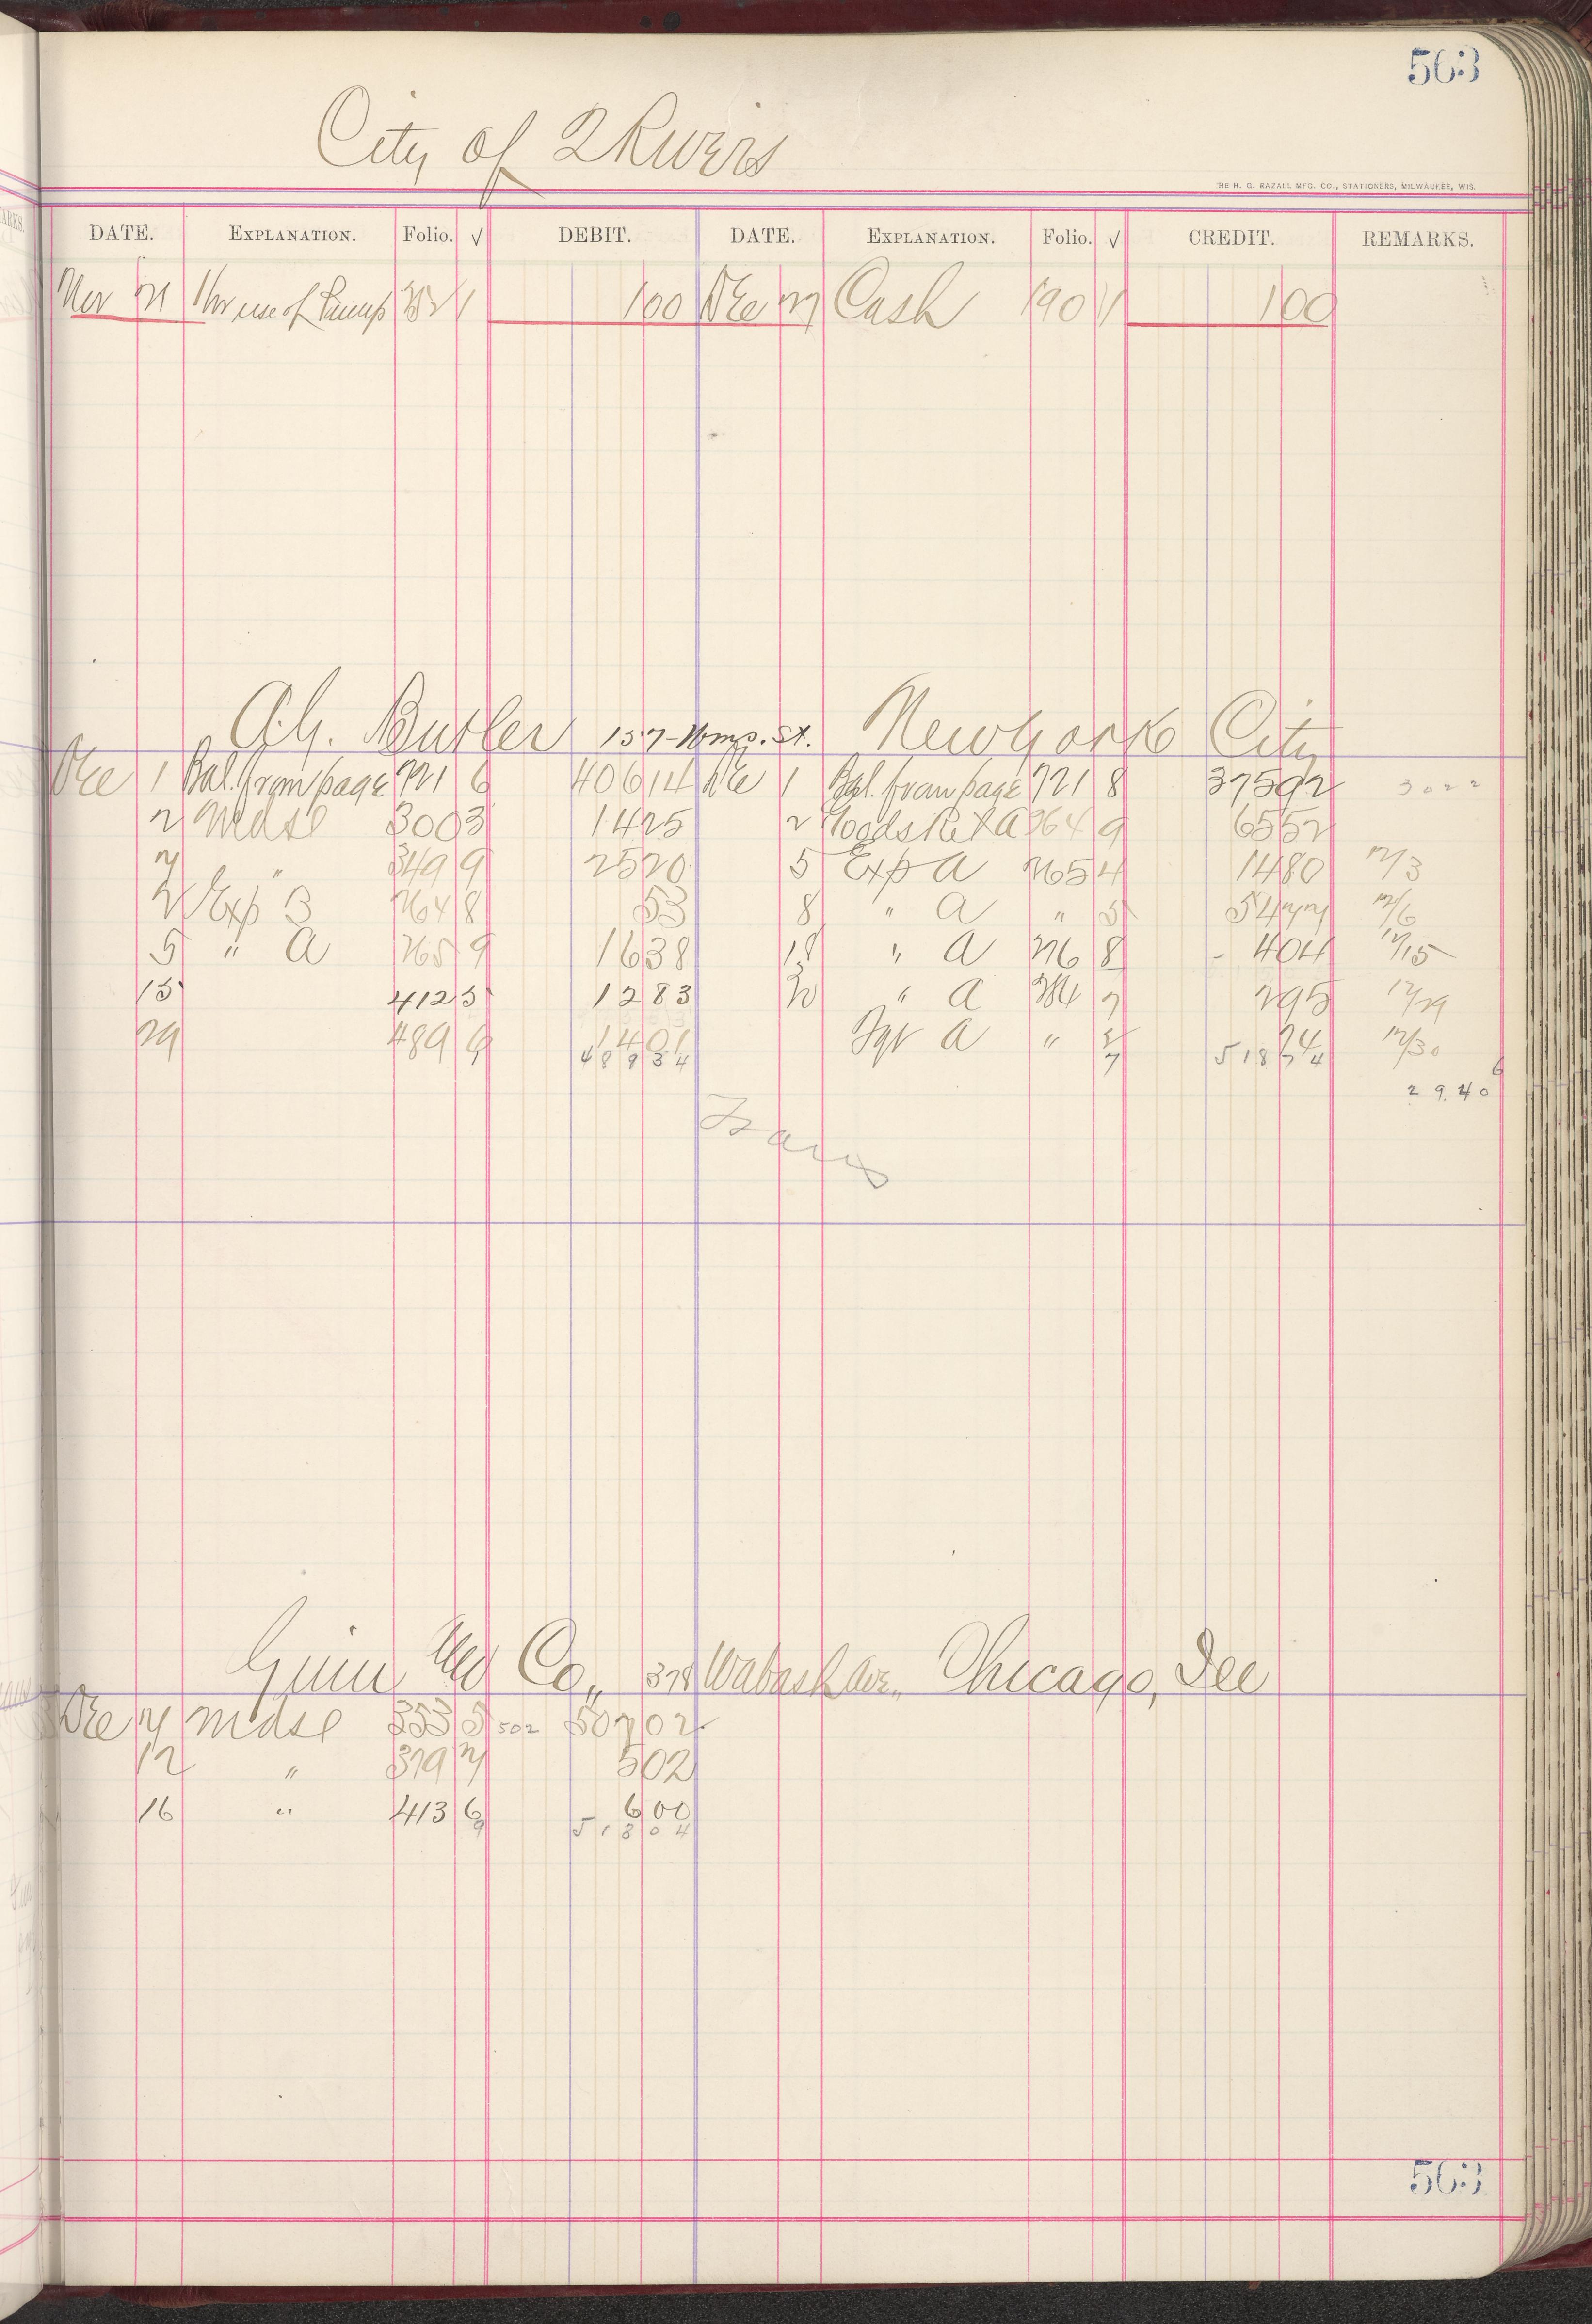 563
City of 2 Rivers
THE H. G. RAZALL MFG. CO., STATIONERS, MILWAUKEE, WIS.
DATE. EXPLANATION. Folio. √ DEBIT. DATE. EXPLANATION. Folio. √ CREDIT. REMARKS.
Nov 21 1 hr use of Pump 1 100 Dec 27 Cash 190 1 100
A.G. Butler 157- St. New York City
Dec 1 Bal. from page 721 6 40614 Dec 1 Bal. from page 721 8 37592 3022
2 Mdse 300 3 1425 2 Goods Ret A 264 9 6552
7 " 349 9 2520 5 Exp A 265 4 1480 12/3
2 Exp B 264 8 53 8 " A " 5 5477 12/6
5 " A 265 9 1638 18 " A 276 8 - 404 12/15
15 412 5 1283 30 " A 284 7 295 12/29
29 489 6 1401 Fgt A " 74 12/30
48934 51874
29.40
Trans
Guin Co., 378 Wabash Ave., Chicago, Ill
Dec 7 Mdse 353 5 502 50702
12 " 379 7 502
16 " 413 6 600
9 51804
563